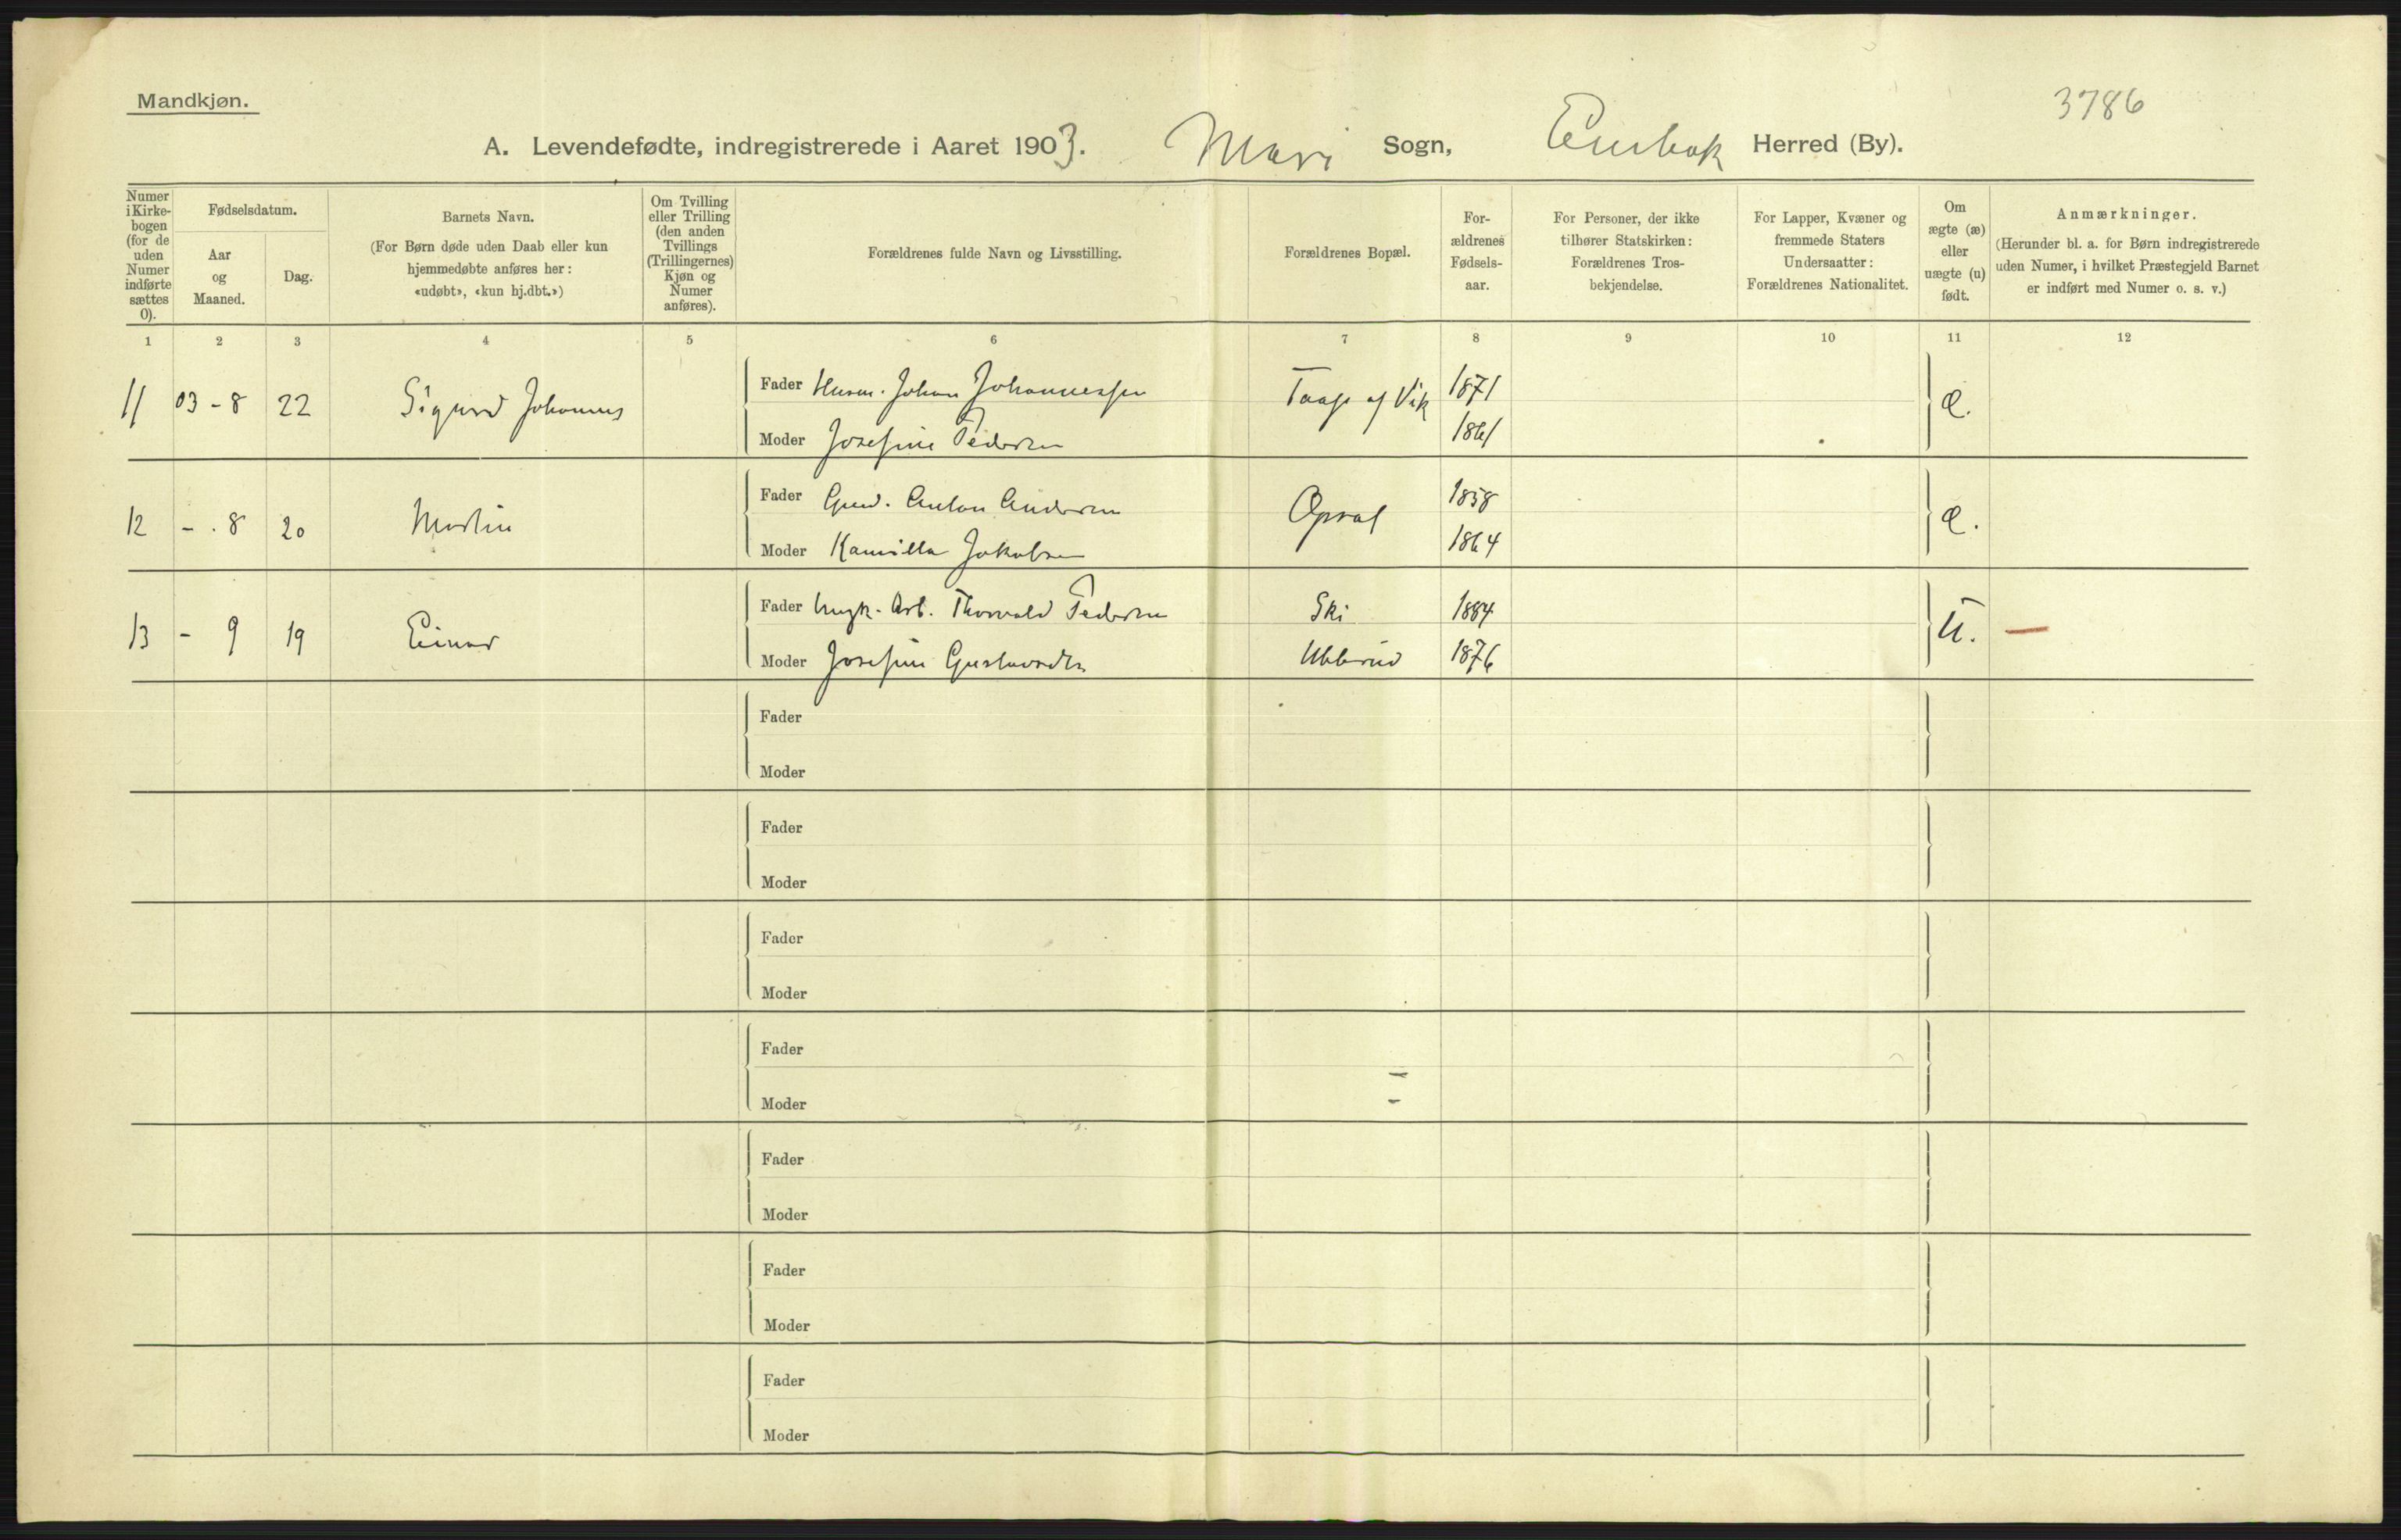 Mandkjøn.
3786
A. Levendefødte, indregistrerede i Aaret 1903. Mari Sogn, Enebak Herred (By).
Numer i Kirke- bogen (for de uden Numer indførte sættes 0).
Fødselsdatum.
Aar og Maaned.
Dag.
Barnets Navn.
(For Børn døde uden Daab eller kun
hjemmedøbte anføres her:
«udøbt», «kun hj.dbt.»)
Om Tvilling
eller Trilling
(den anden
Tvillings
(Trillingernes)
Kjøn og
Numer
anføres).
Forældrenes fulde Navn og Livsstilling.
Forældrenes Bopæl.
For-
ældrenes
Fødsels-
aar.
For Personer, der ikke
tilhører Statskirken:
Forældrenes Tros-
bekjendelse.
For Lapper, Kvæner og
fremmede Staters
Undersaatter:
Forældrenes Nationalitet.
Om
ægte (æ)
eller
uægte (u)
født.
Anmærkninger.
(Herunder bl. a. for Børn indregistrerede
uden Numer, i hvilket Præstegjeld Barnet
er indført med Numer o. s. v.)
1 2 3 4 5 6 7 8 9 10 11 12
11 03-8 22 Sigurd Johannes Fader Husm. Johan Johannessen af Vik 1871 æ.
Moder Josefine Pedersen 1861
12 -.8 20 Martin Fader Grd. Anton Andersen Opsal 1858 æ.
Moder Kamilla Jakobsen 1864
13 - 9 19 Einar Fader Ungk. Arb. Thorvald Pedersen Ski 1884 u. —
Moder Josefine Gustavsdtr Ubberud 1876
Fader
Moder
Fader
Moder
Fader
Moder
Fader
Moder
Fader
Moder
Fader
Moder
Fader
Moder